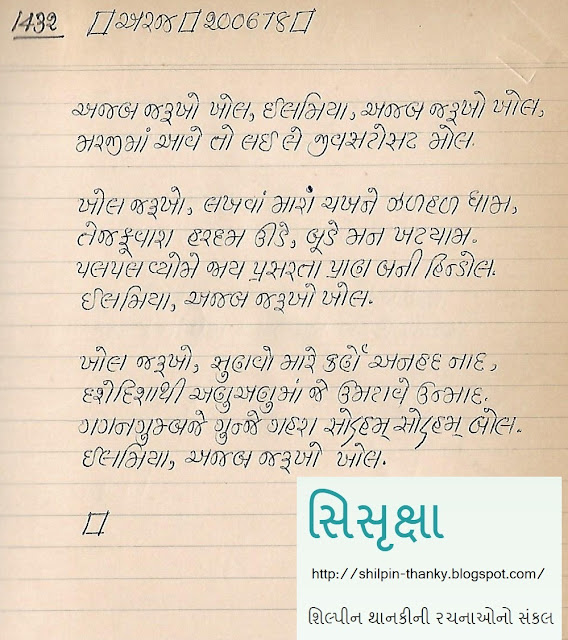 1432 □અરજ□200678□
અજબ જરૂખો ખોલ, ઈલમિયા, અજબ જરૂખો ખોલ,
મરજીમાં આવે તો લઈ લે જીવસટોસટ મોલ.
ખોલ જરૂખો, લખવાં મારાં ચખને ઝળહળ ધામ,
તેજફૂવારા હરદમ ઊડે, બૂડે મન ખટયામ.
પલપલ વ્યોમે જાય પ્રસરતા પ્રાણ બની હિન્ડોલ.
ઈલમિયા, અજબ જરૂખો ખોલ.
ખોલ જરૂખો, સુણવો મારે કર્ણે અનહદ નાદ,
દશેદિશાથી અણુઅણુમાં જે ઉમટાવે ઉન્માદ.
ગગનગુમ્બજે ગુન્જે ગહરા સોડહમ્ સોડહમ્ બોલ.
ઈલમિયા, અજબ જરૂખો ખોલ.
□
સિસૃક્ષા
http://shilpin-thanky.blogspot.com/
શિલ્પીન થાનકીની રચનાઓનો સંકલ